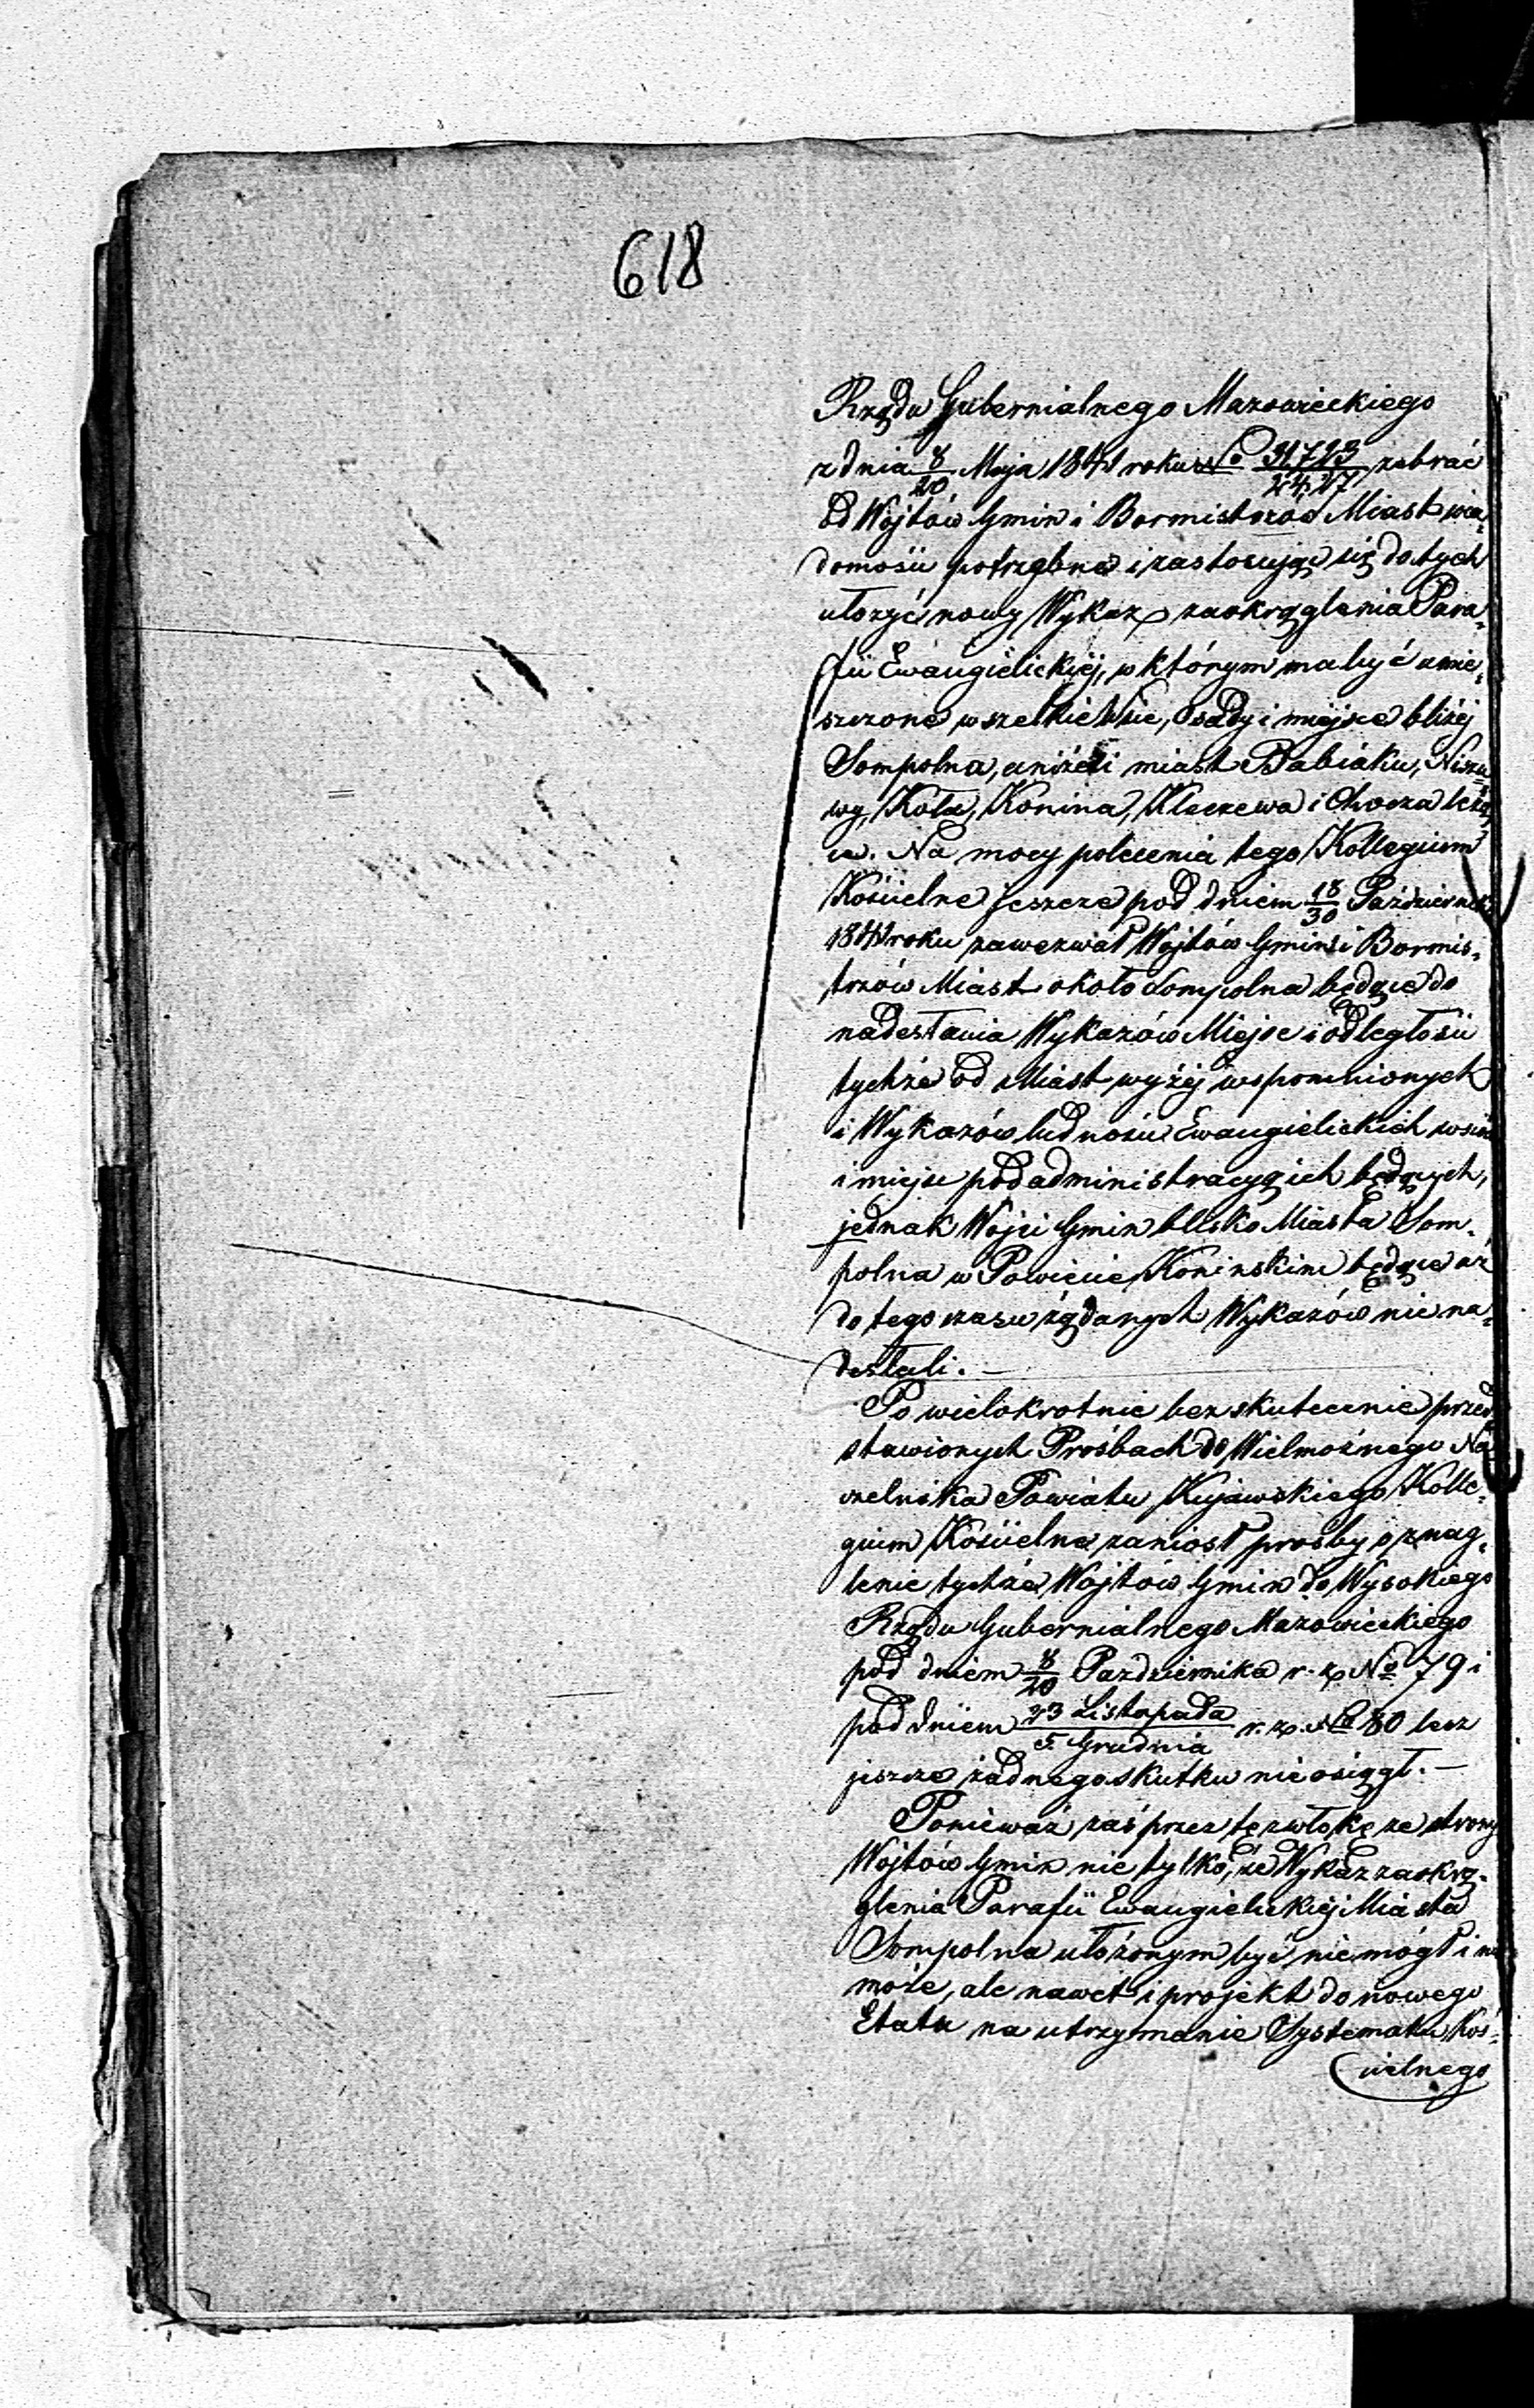 618
Rządu Gubernialnego Mazowieckiego
z dnia 8/20 Maja 1841 roku No 31723/24,27 zebrać
od Wójtów Gmin i Bormistrzów Miast wia=
domości potrzebne i zastosując się do tych
ułożyć nowy Wykaz zaokrąglenia Para=
fii Ewangielickiej, w którym ma być umie=
szczone wszelkie Wsie, Osady i miejsca bliżéj
Sompolna, aniżeli miast Babiaku,
wy, Koła, Konina, Kleczewa i
ce. Na mocy polecenia tego Kollegium
Kościelne jeszcze pod dniem 18/30 Październik
1841 roku zawezwał Wójtów Gmin i Bormis=
trzów Miast około Sompolna będące do
nadesłania Wykazów Miejsc i odległości
tychże od Miast wyżéj wspomnionych
i Wykazów ludności Ewangielickich wsiów
i miejsc pod administracyą ich będących,
jednak Wójci Gmin blisko Miasta Som=
polna w Powiecie Koninskim będące aż
do tego czasu żądanych Wykazów nie na=
desłali. —
Po wielokrotnie bezskutecznie przed
stawionych Prośbach do Wielmożnego Na
czelnika Powiatu Kujawskiego Kolle=
gium Kościelne zaniosł prosby o znag=
lenie tychże Wójtów Gmin do Wysokiego
Rządu Gubernialnego Mazowieckiego
pod dniem 8/20 Pazdziernika r. z No 79 i
pod dniem 23 Listopada/5 Grudnia r. z. No 80 lecz
jeszcze żadnego skutku nie osiągł. —
Ponieważ zaś przez tę zwłokę ze strony
Wójtów Gmin nie tylko, że Wykaz zaokrą=
glenia Parafii Ewangielickiéj Miasta
Sompolna ułożonym być nie mógł i nie
może, ale nawet i projekt do nowego
Etatu na utrzymanie Systematu Koś=
cielnego